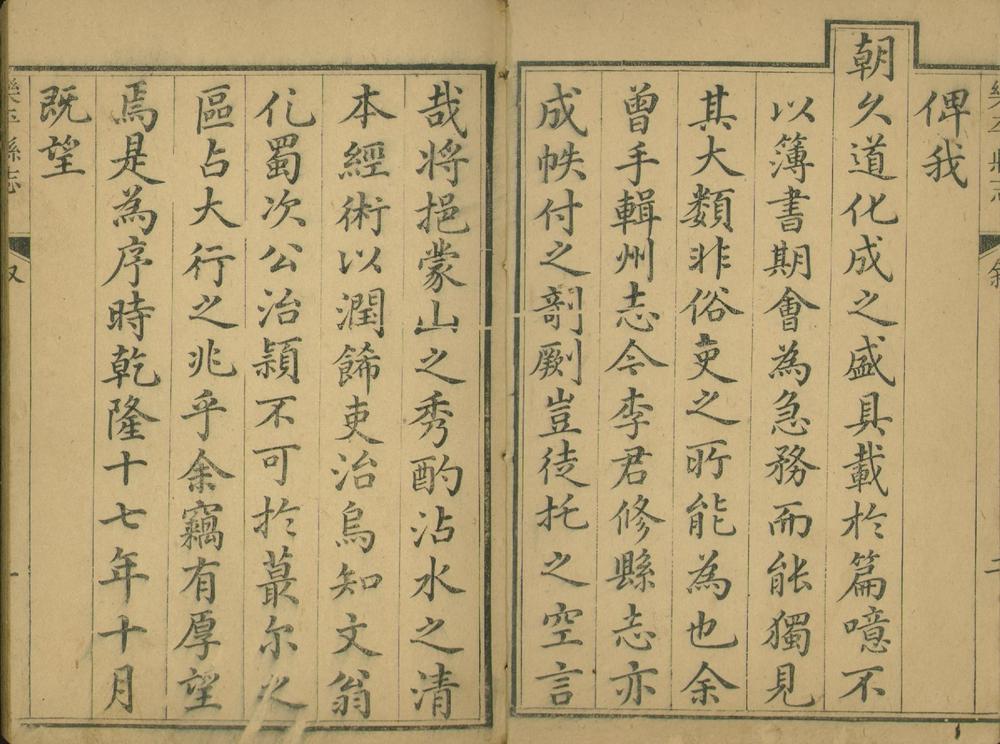 俾我
朝久道化成之盛具載於篇噫不
以簿書期會為急務而能獨見
其大類非俗吏之所能為也余
曾手輯州志今李君修縣志亦
成帙付之剞劂豈徒托之空言
哉将挹蒙山之秀酌沾水之清
本經術以潤餙吏治烏知文翁
化蜀次公治潁不可於蕞尔之
區占大行之兆乎余竊有厚望
焉是為序時乾隆十七年十月
既望
樂平縣志